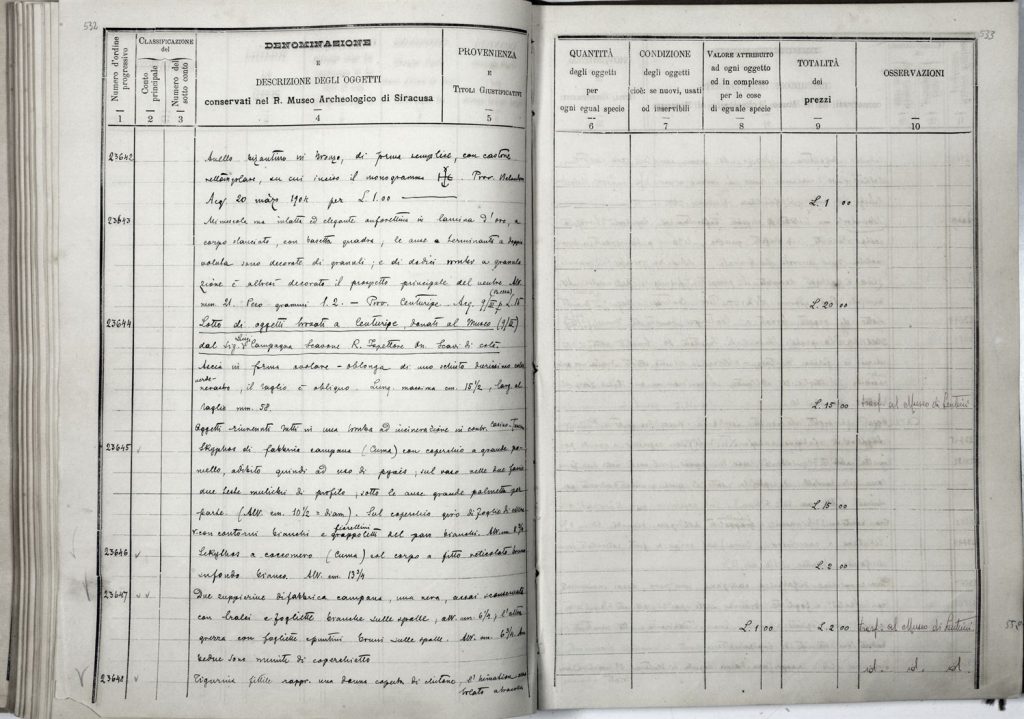 532
Numero d'ordine progressivo
CLASSIFICAZIONE
del
Conto principale
Numero del sotto conto
DENOMINAZIONE
E
DESCRIZIONE DEGLI OGGETTI
conservati nel R. Museo Archeologico di Siracusa
PROVENIENZA
E
TITOLI GIUSTIFICATIVI
1 2 3 4 5
23642 Anello bizantino in bronzo, di forma semplice, con castone
rettangolare, su cui inciso il monogramma . Prov.
Acq. 20 marzo 1904 per L. 1.00
23643 Minuscola ma intatta ed elegante anforettina in lamina d'oro, a
corpo slanciato, con basetta quadra; le anse a terminanti a doppia
voluta sono decorate di granuli; e di dodici rombi a granula
zione è altresì decorato il prospetto principale del ventre. Alt.
mm. 21. Peso grammi 1.2. — Prov. Centuripe. Acq. 9/III p. L.
23644 Lotto di oggetti trovati a Centuripe, donati al Museo (9/III)
dal Sig. Luigi Campagna Scavone R. Ispettore On. Scavi di colà.
Ascia in forma ovolare - oblonga di uno schisto durissimo
verde-nerastro, il taglio è obliquo. Lung. massima cm. 15 1/2, larg. al
taglio mm. 58.
Oggetti rinvenuti tutti in una tomba ad incinerazione in contr. Casino
23645 Skyphos di fabbrica campana (Cuma) con coperchio a grande po-
mello, adibito quindi ad uso di pyxis; sul vaso nelle due facce
due teste muliebri di profilo, sotto le anse grande palmetta per
parte. (Alt. cm. 10 1/2 = diam.). Sul coperchio giro di foglie di
con contorni bianchi e fiorellini grappoletti del pari bianchi. Alt. cm.
23646 Lekythos a cocomero (Cuma) col corpo a fitto reticolato bruno
su fondo bianco. Alt. cm 13 3/4
23647 Due zuppierine di fabbrica campana, una nera, assai
con tralci e fogliette bianche sulle spalle, alt. cm. 6 1/2, l'altra
grezza con fogliette e puntini bruni sulle spalle. Alt. cm. 6
bedue sono munite di coperchietto
23648 Figurina fittile rappr. una donna coperta di chitone, l'himation
533
QUANTITÀ
degli oggetti
per
ogni egual specie
CONDIZIONE
degli oggetti
cioè: se nuovi, usati
od inservibili
VALORE ATTRIBUITO
ad ogni oggetto
ed in complesso
per le cose
di eguale specie
TOTALITÀ
dei
prezzi
OSSERVAZIONI
6 7 8 9 10
L. 1 00
L. 20 00
L. 15 00 trasf. al Museo di Lentini
L. 15 00
L. 2 00
L. 1 00 L. 2 00 trasf. al Museo di Lentini
d. d. d.